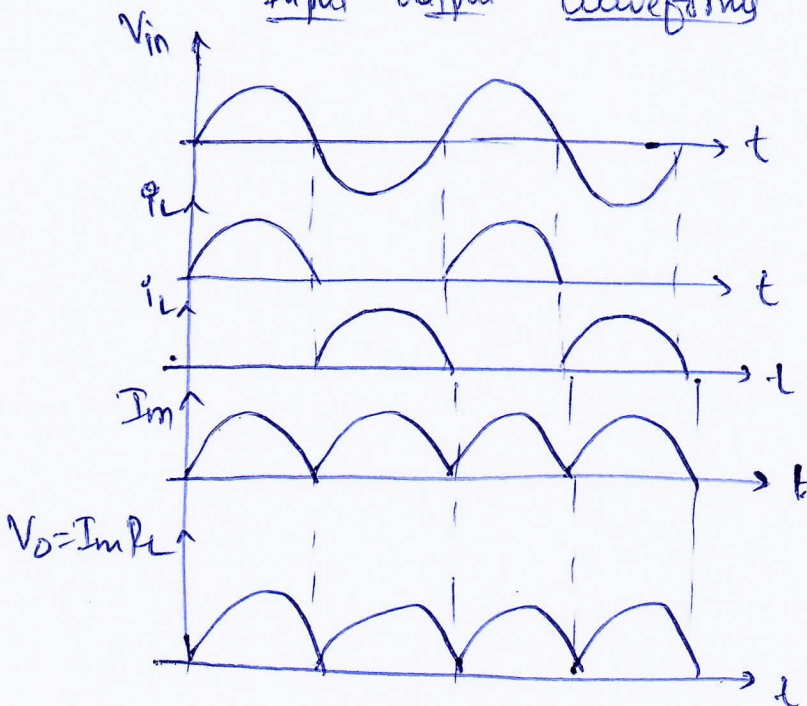 Input Output Waveforms
Vin
t
iL
t
iL
t
Im
t
V0=ImRL
t